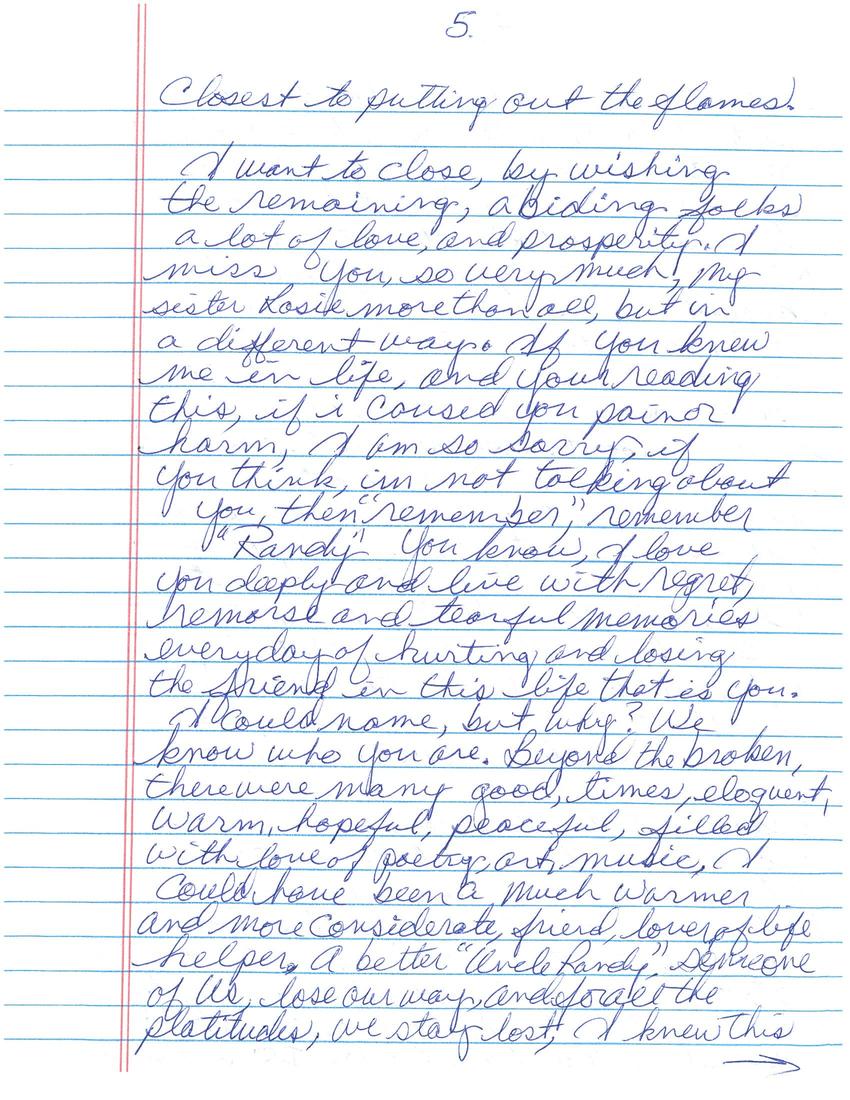 5.
Closest to putting out the flames.
I want to close, by wishing
the remaining, abiding folks
a lot of love, and prosperity. I
miss you, so very much, my
sister Rosie more than all, but in
a different way. If you knew
me in life, and your reading
this, if i caused you pain or
harm, I am so sorry, if
you think, im not talking about
you, then "remember," remember
"Randy" You know, I love
you deeply and live with regret,
remorse and tearful memories
everyday of hurting and losing
the friend in this life that is you.
I could name, but why? We
know who you are. Beyond the broken,
there were many good, times, eloquent,
warm, hopeful, peaceful, filled
with love of poetry, art, music, I
could have been a much warmer
and more considerate, friend, lover of life
helper. A better "Uncle Randy," Someone
of us, lose our way, and for all the
platitudes, we stay lost, I knew this